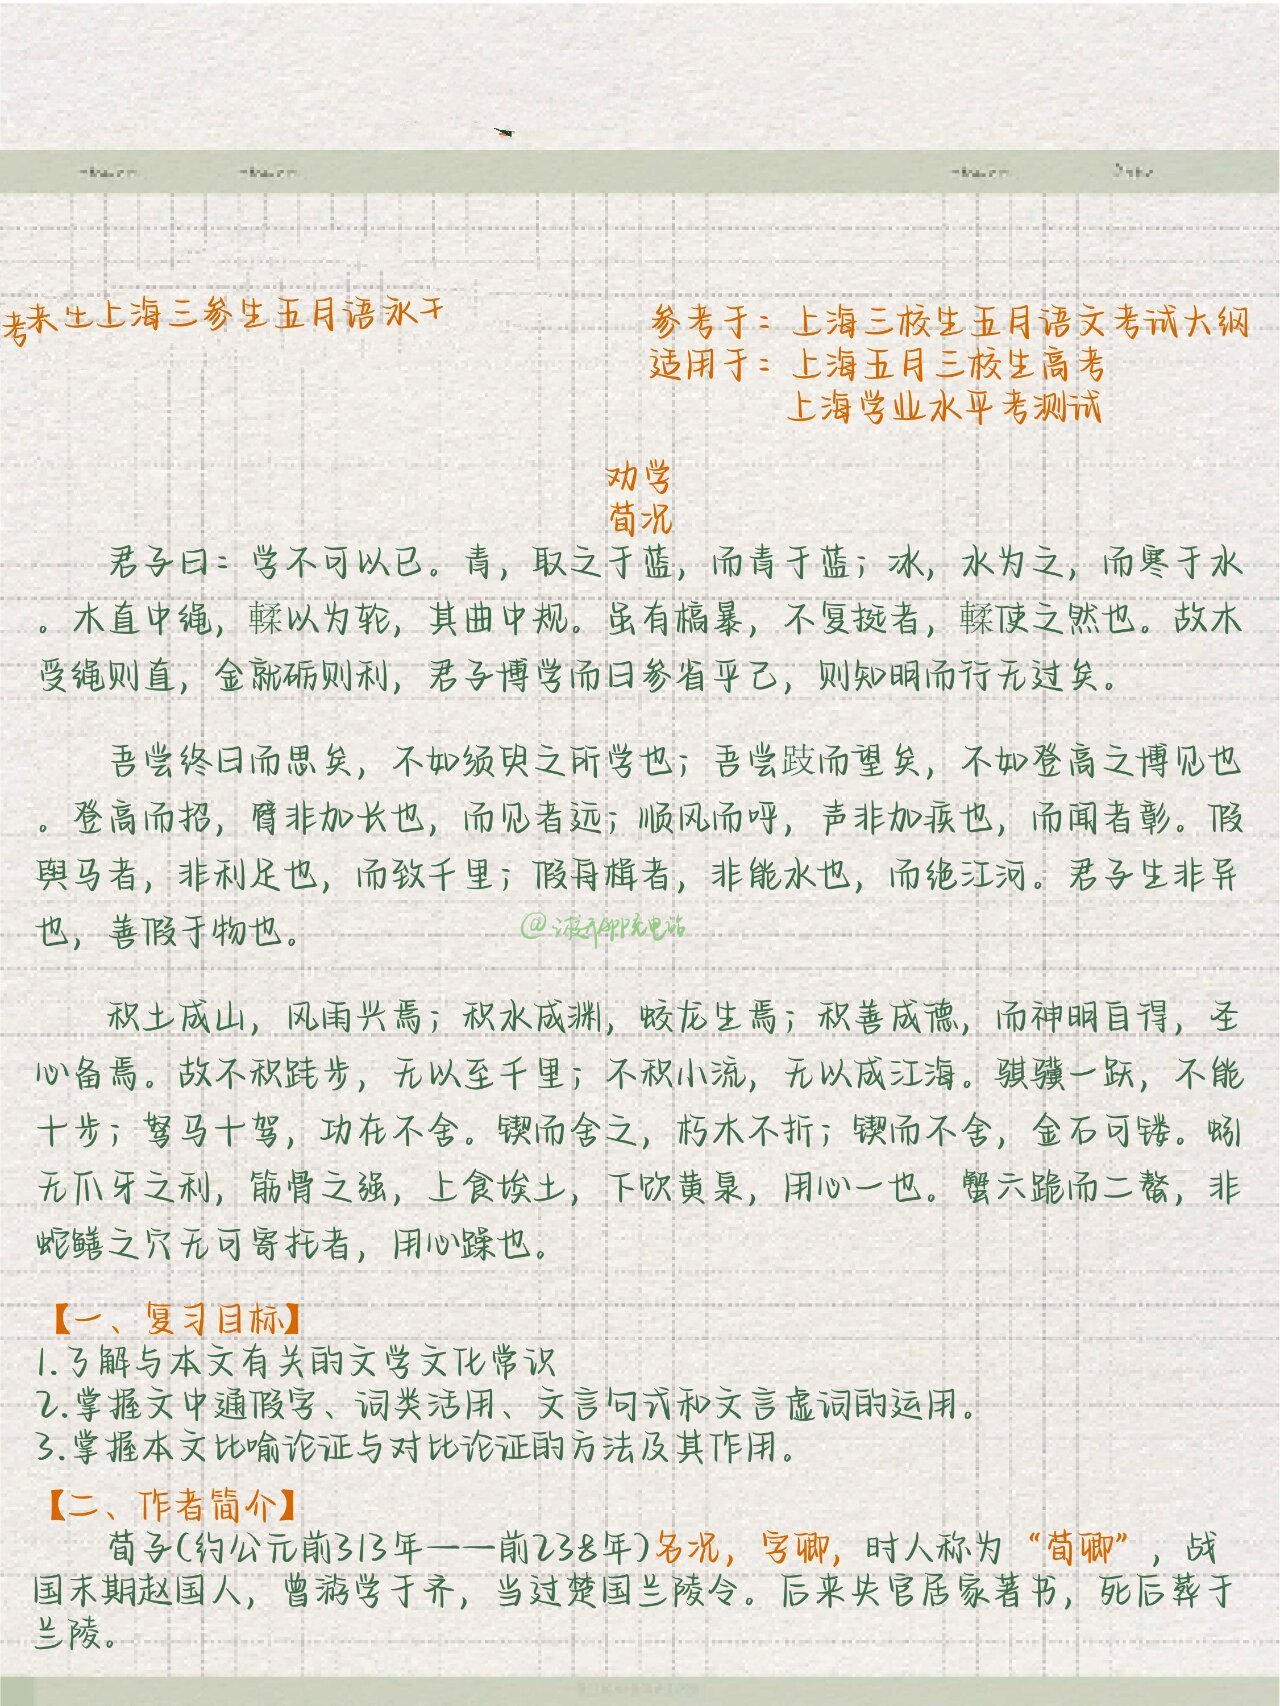 考来生上海三参生五月语永干
参考于：上海三校生五月语文考试大纲
适用于：上海五月三校生高考
上海学业水平考测试
劝学
荀况
君子曰：学不可以已。青，取之于蓝，而青于蓝；冰，水为之，而寒于水
。木直中绳，輮以为轮，其曲中规。虽有槁暴，不复挺者，輮使之然也。故木
受绳则直，金就砺则利，君子博学而日参省乎己，则知明而行无过矣。
吾尝终日而思矣，不如须臾之所学也；吾尝跂而望矣，不如登高之博见也
。登高而招，臂非加长也，而见者远；顺风而呼，声非加疾也，而闻者彰。假
舆马者，非利足也，而致千里；假舟楫者，非能水也，而绝江河。君子生非异
也，善假于物也。
积土成山，风雨兴焉；积水成渊，蛟龙生焉；积善成德，而神明自得，圣
心备焉。故不积跬步，无以至千里；不积小流，无以成江海。骐骥一跃，不能
十步；驽马十驾，功在不舍。锲而舍之，朽木不折；锲而不舍，金石可镂。蚓
无爪牙之利，筋骨之强，上食埃土，下饮黄泉，用心一也。蟹六跪而二螯，非
蛇鳝之穴无可寄托者，用心躁也。
【一、复习目标】
1.了解与本文有关的文学文化常识
2.掌握文中通假字、词类活用、文言句式和文言虚词的运用。
3.掌握本文比喻论证与对比论证的方法及其作用。
【二、作者简介】
荀子(约公元前313年——前238年)名况，字卿，时人称为“荀卿”，战
国末期赵国人，曾游学于齐，当过楚国兰陵令。后来失官居家著书，死后葬于
兰陵。